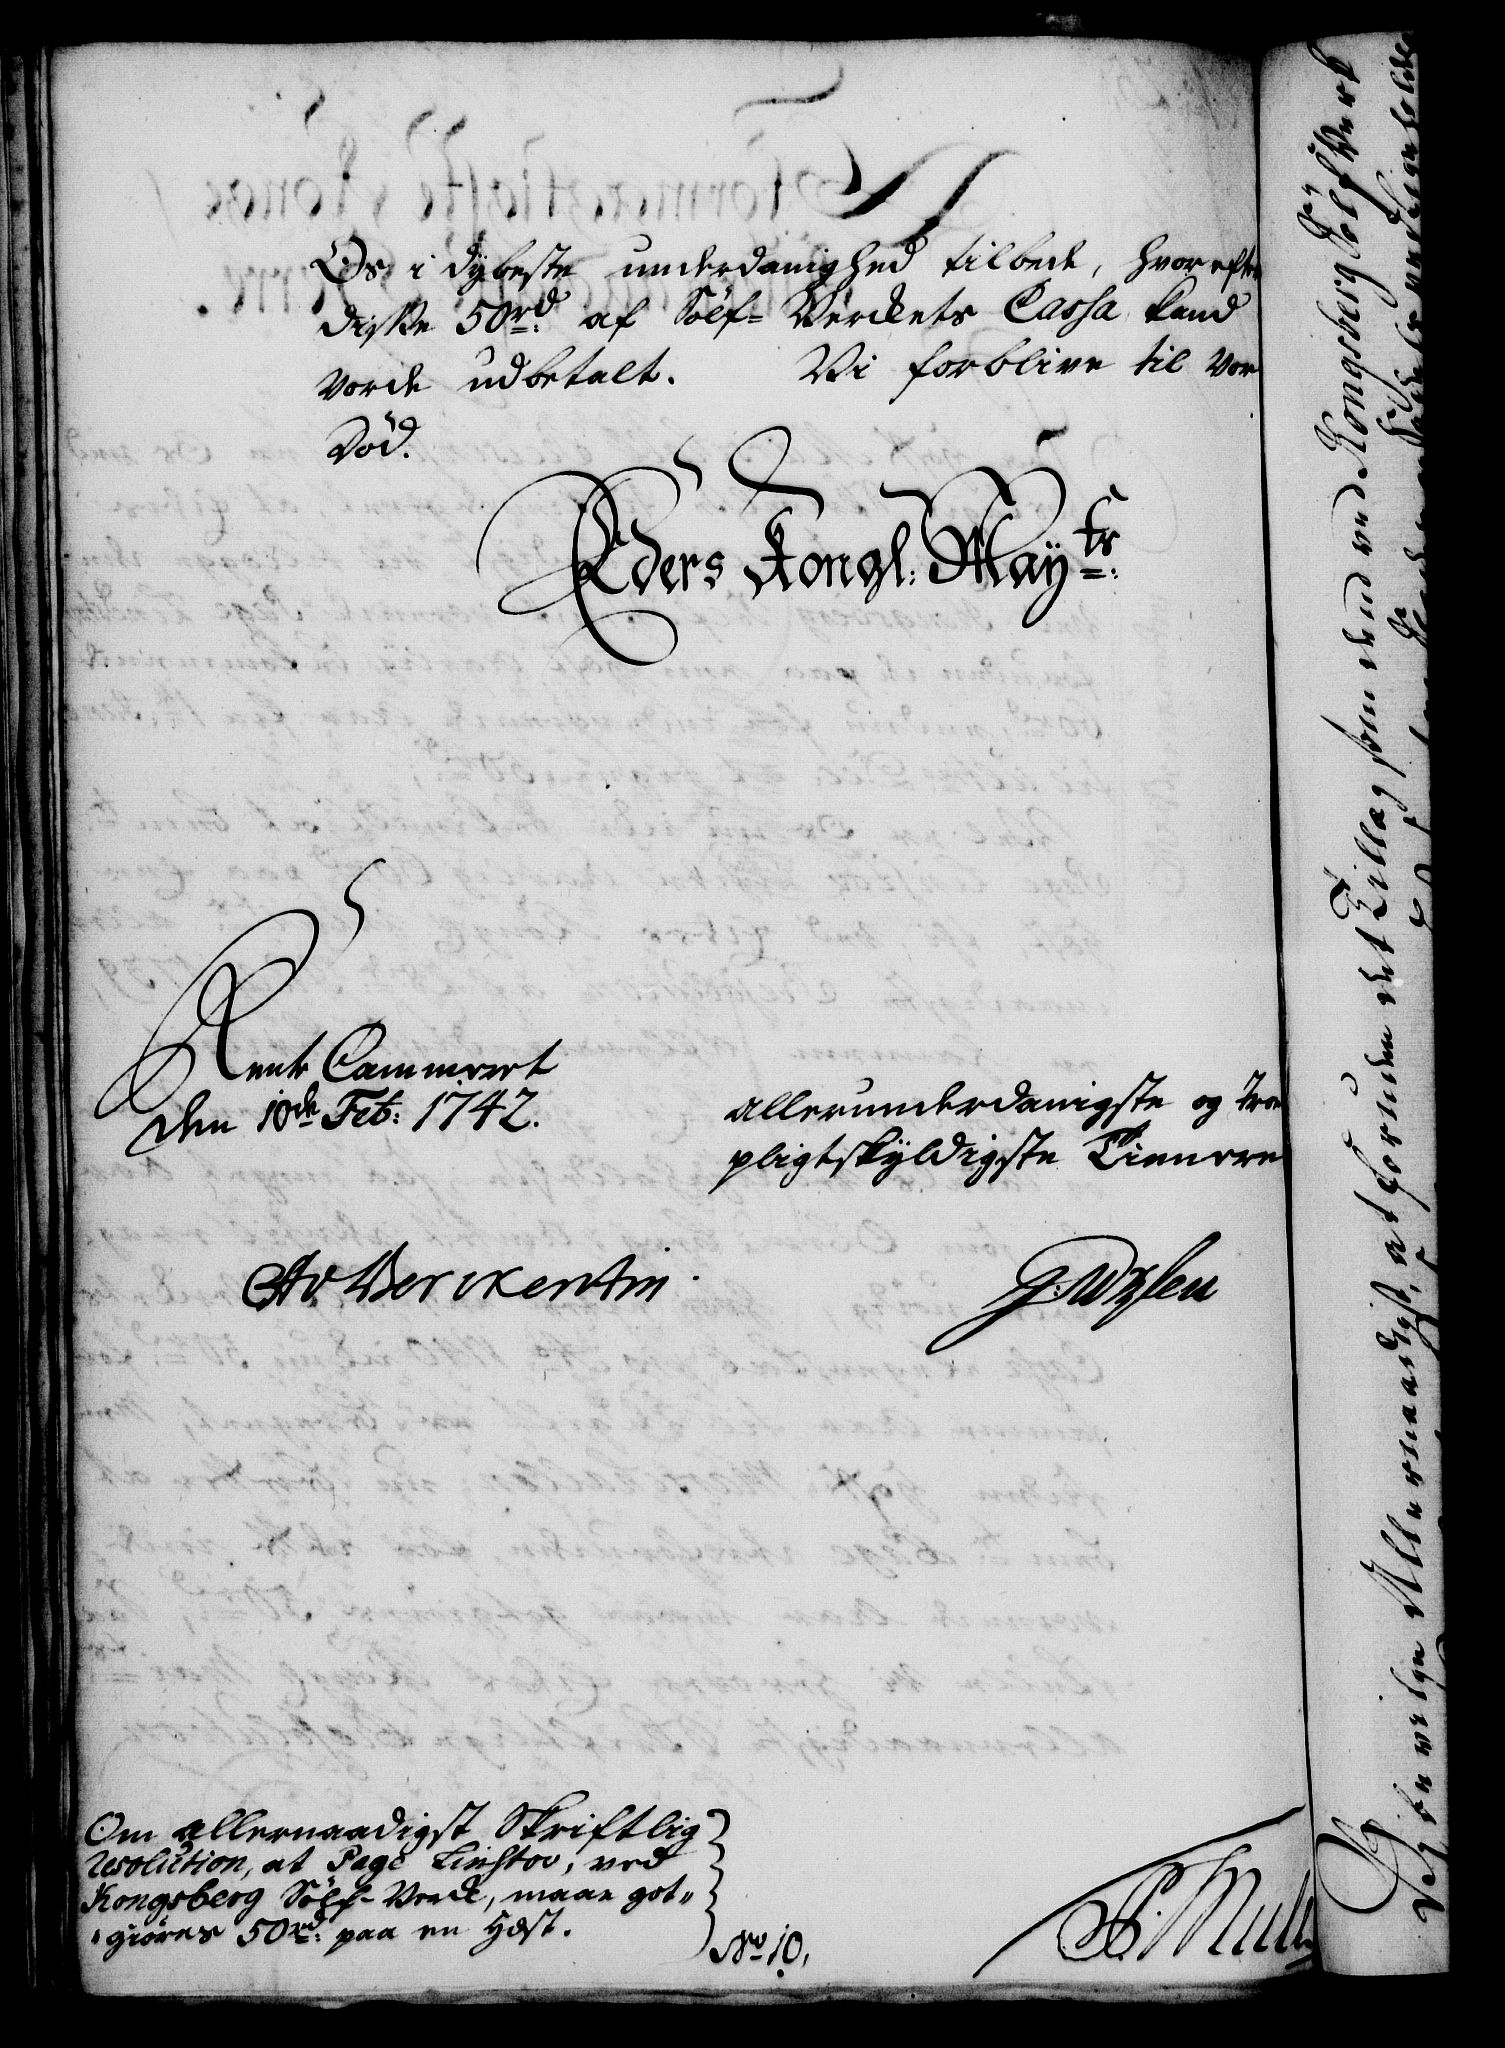 Os i dÿbeste underdanighed tilbede, hvorefter
diske 50rd: af Sölf-Verckets Cassa kand
vorde udbetalt. Vi forblive til vor
Död.
Eders Kongl: Maÿts:
Rente Cammeret
den 10de Feb: 1742.
allerunderdanigste og troe
pligtskÿldigste Tienere
Berckentin
Om allernaadigst Skriftlig
resolution, at Page Linstov, ved
Kongsberg Sölf-Verck, maae got-
giöres 50rd: paa en Hæst.
No 10.
Vi ville Allernaadigst, at foruden det Tillæg som den ved Kongsberg Sölf Verk